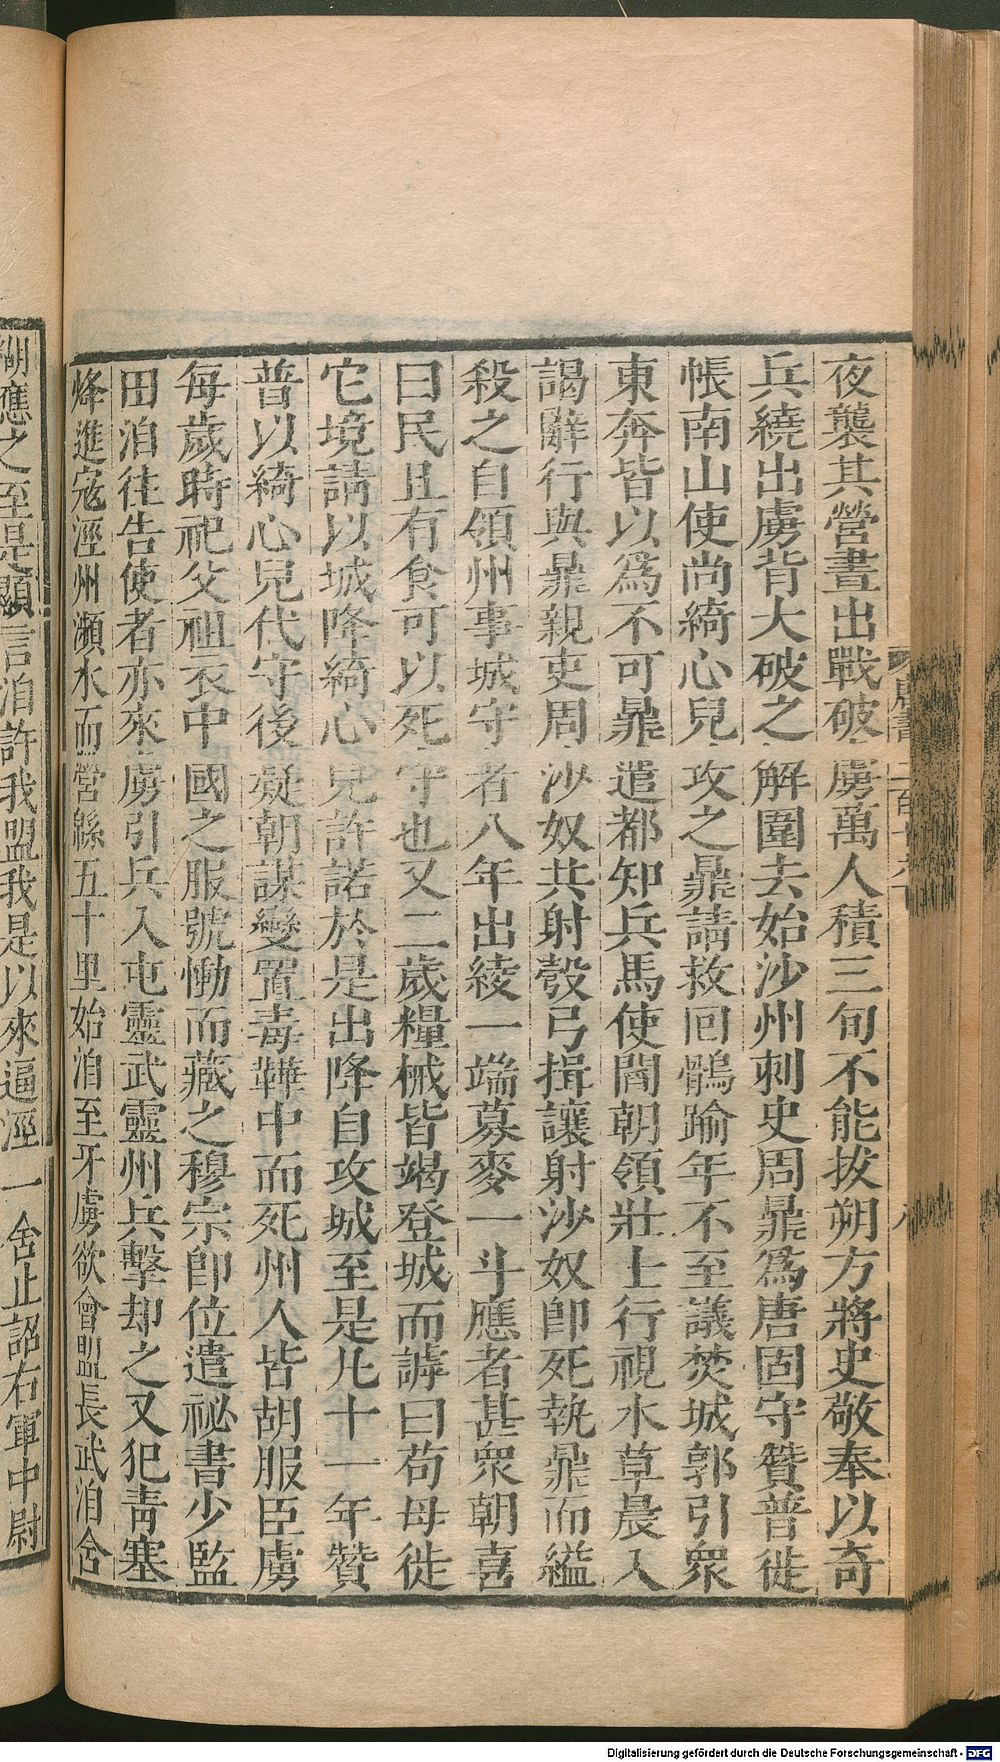 夜襲其營晝出戰破虜萬人積三旬不能拔朔方將史敬奉以奇
兵繞出虜背大破之解圍去始沙州刺史周鼎爲唐固守贊普徙
帳南山使尚綺心兒攻之鼎請救回鶻踰年不至議焚城郭引衆
東奔皆以爲不可鼎遣都知兵馬使閻朝領壯士行視水草晨入
謁辭行與鼎親吏周沙奴共射彀弓揖讓射沙奴即死執鼎而縊
殺之自領州事城守者八年出綾一端募麥一斗應者甚衆朝喜
曰民且有食可以死守也又二歲糧械皆竭登城而謼曰苟毋徙
它境請以城降綺心兒許諾於是出降自攻城至是凡十一年贊
普以綺心兒代守後疑朝謀變置毒鞾中而死州人皆胡服臣虜
每歲時祀父祖衣中國之服號慟而藏之穆宗即位遣祕書少監
田洎往告使者亦來虜引兵入屯靈武靈州兵擊却之又犯青塞
烽進寇涇州瀕水而營緜五十里始洎至牙虜欲會盟長武洎含
糊應之至是顯言洎許我盟我是以來逼涇一舍止詔右軍中尉
Digitalisierung gefördert durch die Deutsche Forschungsgemeinschaft - DFG